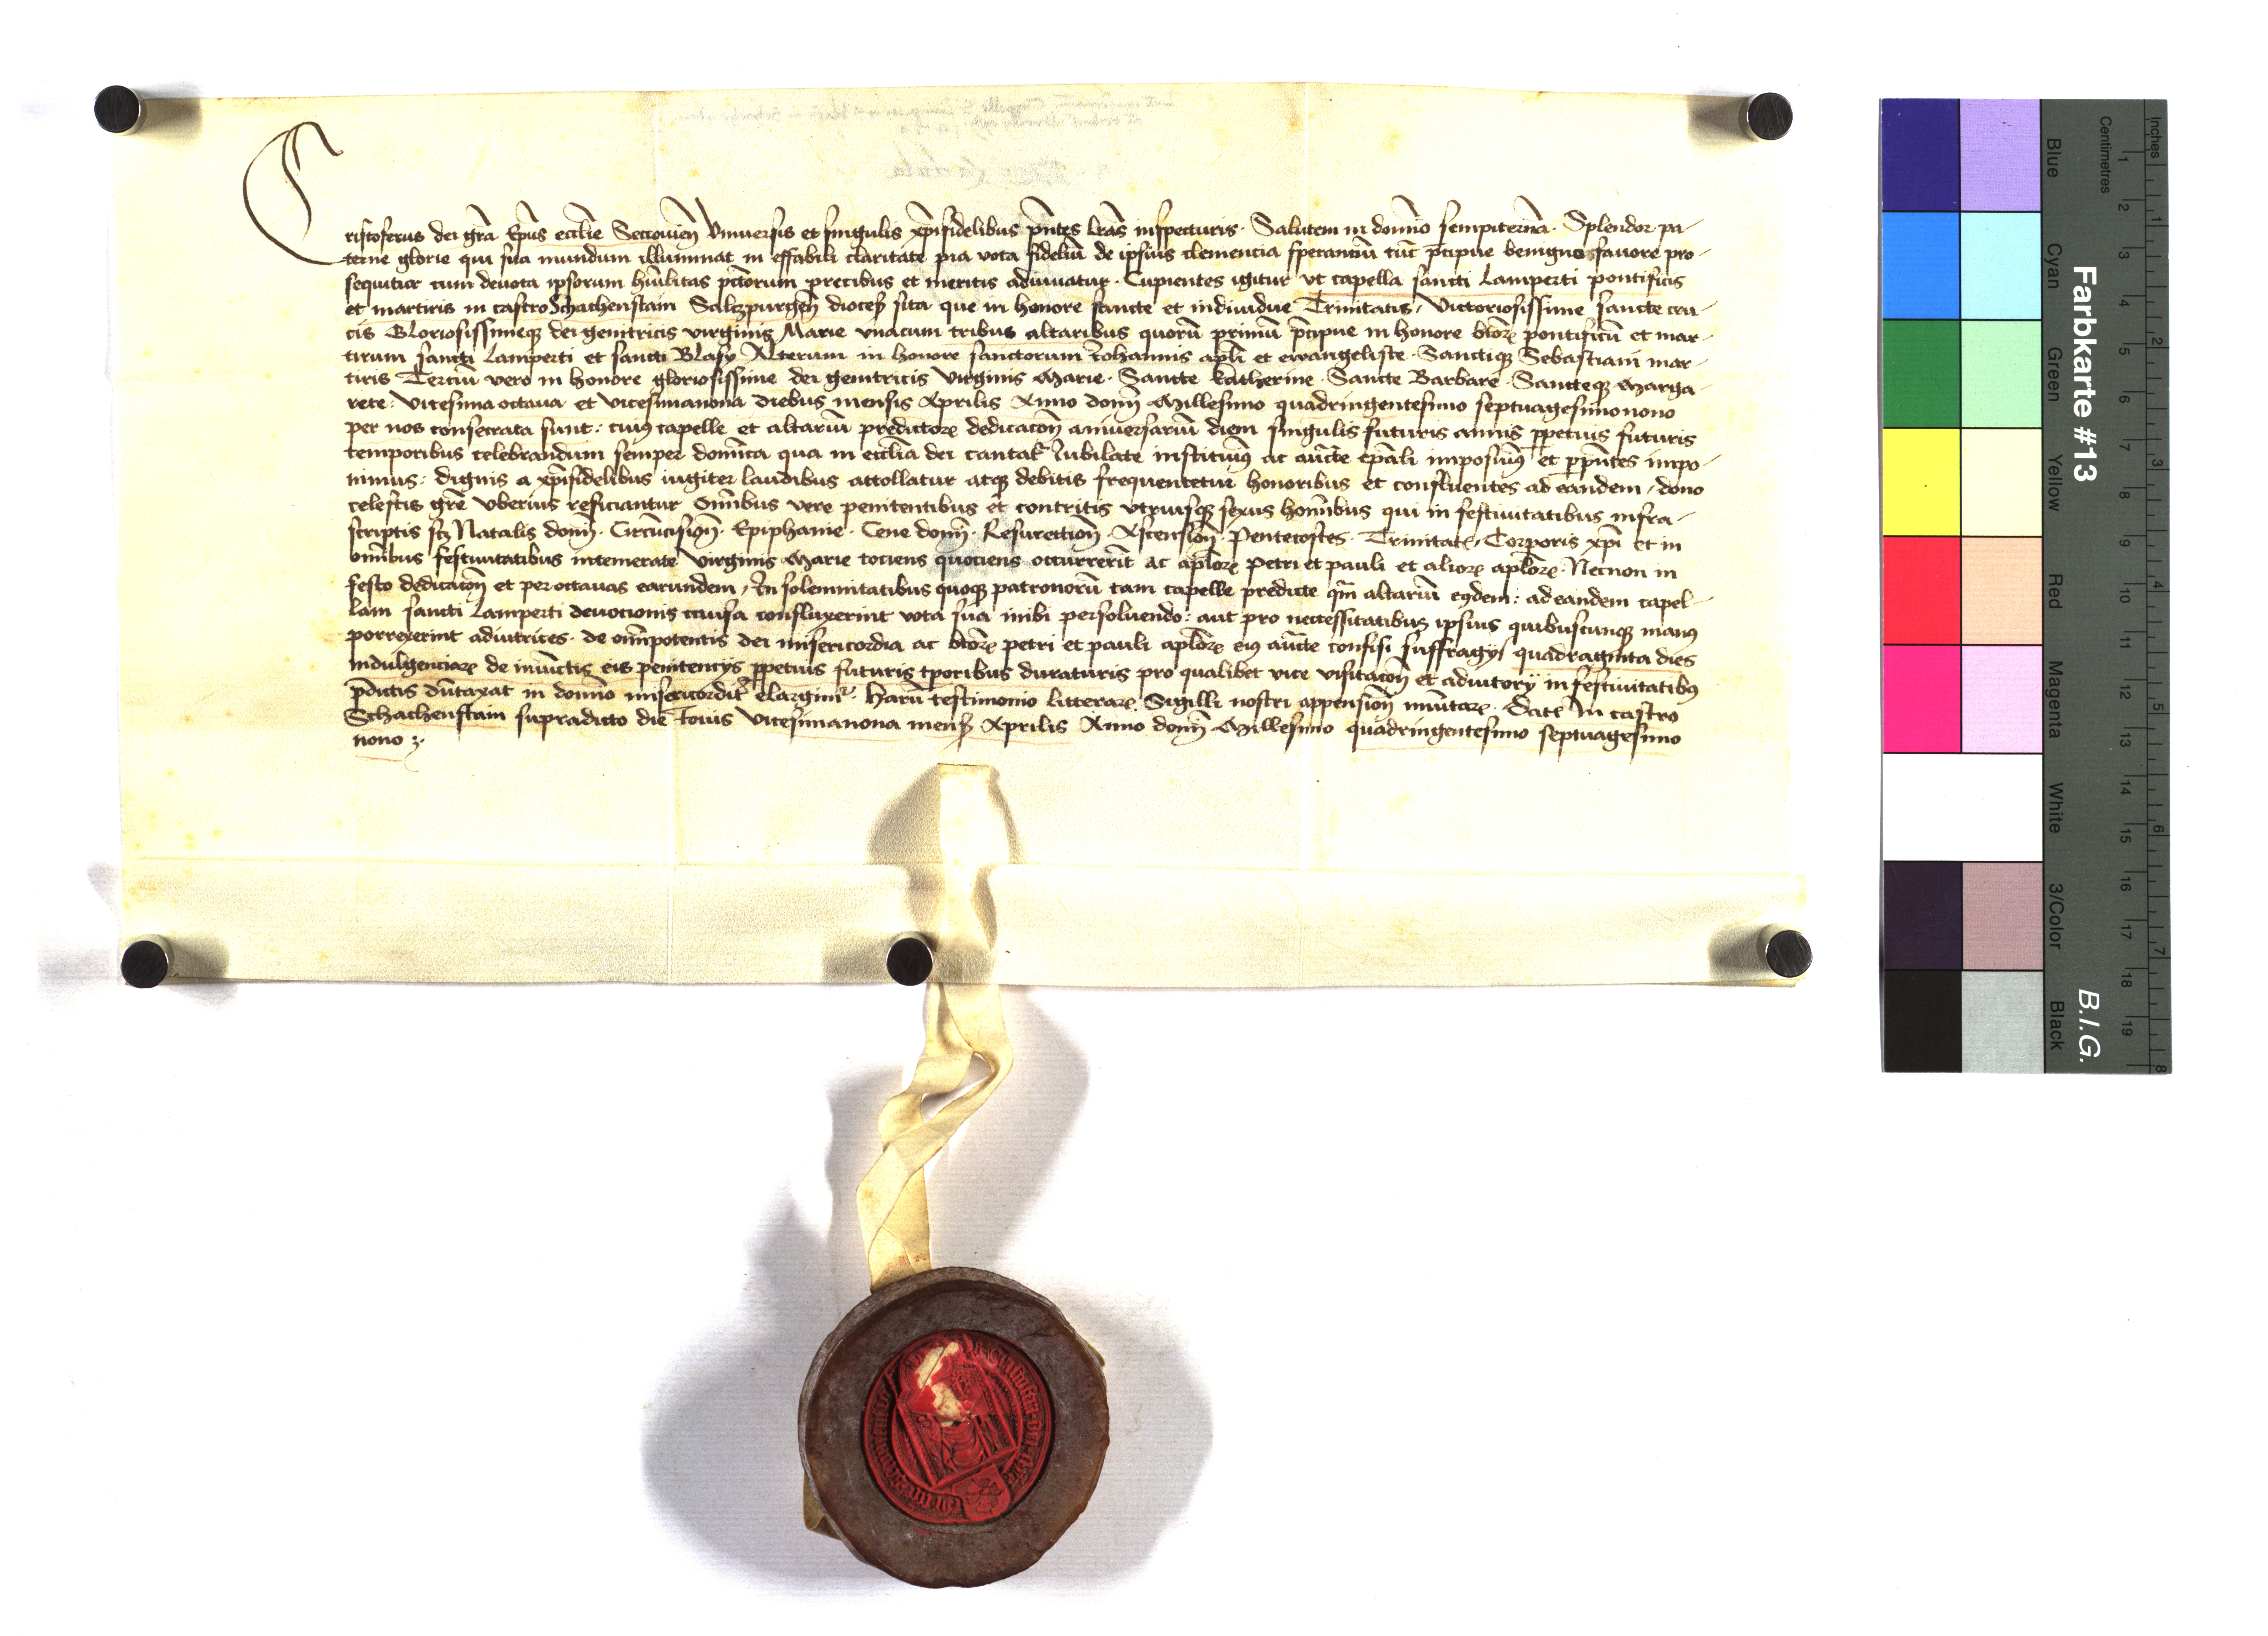 Cristoferus dei grã Ep̃us ecclie Seccovien̄ Vniuersis et singulis xp̃ifidelibus p̃ntes l̃ras inspecturis · Salutem in domĩo sempiternã · Splendor pa-
terne glorie qui sua mundum illuminat in effabili claritate pia vota fideliũ de ipsius clemencia sperantiũ tũc p̃cipue benigno fauore pro-
sequitur cum deuota ipsorum hũilitas sc̃torum precibus et meritis adiuuatur · Cupientes igitur vt capella sancti Lamperti pontificis
et martiris in castro Schachenstain Saltzpurgen̄ dioces̃ sita que in honore sancte et indiuidue Trinitatis, Victoriosissime sancte cru-
cis Gloriosissimeq̃ dei genitricis virginis Marie vnacum tribus altaribus quorũ primũ p̃cipue in honore btõꝝ pontificũ et mar-
tirum sancti Lamperti et sancti Blasy Alterum in honore sanctorum Iohannis apl̃i et ewangeliste · Sanctiq̃ Sebastiani mar-
tiris Terciũ vero in honore gloriosissime dei genitricis Virginis Marie · Sancte Katherine · Sancte Barbare · Sancteq̃ Marga-
rete: Vicesima octaua et vicesimanona diebus mensis Aprilis Anno domĩ Millesimo quadringentesimo septuagesimonono
per nos consecrata sunt: cuiꝯ capelle et altariũ predictoꝝ dedicacõn̄ aniuersariũ diem singulis futuris annis ꝑpetuis futuris
temporibus celebrandum semper domĩca qua in ecclĩa dei cantat̃ Iubilate instituimꝯ ac auc̃te ep̃ali imposuimꝯ et ꝑ p̃ntes impo-
nimus: dignis a xp̃ifidelibus iugiter laudibus attollatur atq̃ debitis frequentetur honoribus et confluentes ad eandem, dono
celestis grẽ vberius reficiantur Om̃ibus vere penitentibus et contritis vtriusq̃ sexus homĩbus qui in festiuitatibus infra-
scriptis scꝫ Natalis domĩ · Circũcision̄ · Epiphanie · Cene domĩ · Resurection̄ · Ascension̄ · Pentecostes · Trinitat̃, Corporis xp̃i et in
om̃ibus festiuitatibus intemerate Virginis Marie tociens quociens occurrerĩt ac apl̃oꝝ Petri et pauli et alioꝝ apl̃oꝝ · Necnon in
festo dedicacõn̄ et per octauas earundem, In solemnitatibus quoq̃ patronorũ tam capelle predicte q̃m altariũ eꝯdem: ad eandem capel-
lam sancti Lamperti deuocionis causa confluxerint vota sua inibi persoluendo: aut pro necessitatibus ipsius quibuscunq̃ manꝯ
porrexerint adiutrices · de om̃ipotentis dei misericordia ac btõꝝ petri et pauli apl̃oꝝ eiꝯ auc̃te confisi suffragys quadraginta dies
indulgenciaꝝ de iniũctis eis penitencys ꝑpetuis futuris tp̃oribus duraturis pro qualibet vice visitacõn̄ et adiutory in festiuitatibꝯ
p̃dictis dũtaxat in domĩo misericordit̃ elargimur · Harũ testimonio litteraꝝ Sigilli nostri appension̄ mũitaꝝ · Dat̃ In castro
Schachenstain supradicto die Iouis Vicesimanona mens̃ Aprilis Anno domĩ Millesimo quadringentesimo septuagesimo
nono ꝫ·
Farbkarte #13
B.I.G.
Inches
Centimetres
1 2 3 4 5 6 7 8 9 10 11 12 13 14 15 16 17 18 19
1 2 3 4 5 6 7 8
Blue
Cyan
Green
Yellow
Red
Magenta
White
3/Color
Black